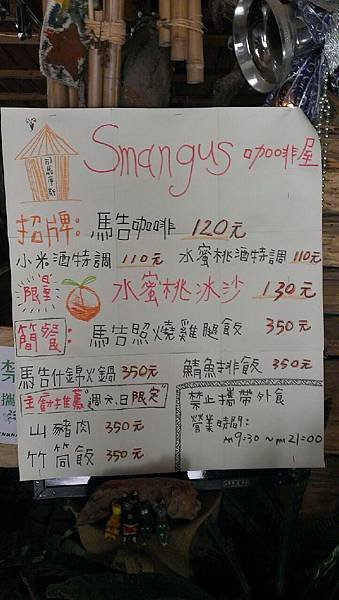 司馬庫斯
Smangus 咖啡屋
招牌: 馬告咖啡 120元
小米酒特調 110元 水蜜桃酒特調 110元
限量 水蜜桃冰沙 130元
簡餐: 馬告照燒雞腿飯 350元
馬告什錦火鍋 350元 鯖魚排飯 350元
主動推薦"週六.日限定"
山豬肉 350元
竹筒飯 350元
禁止攜帶外食
營業時間:
AM9:30~PM21:00